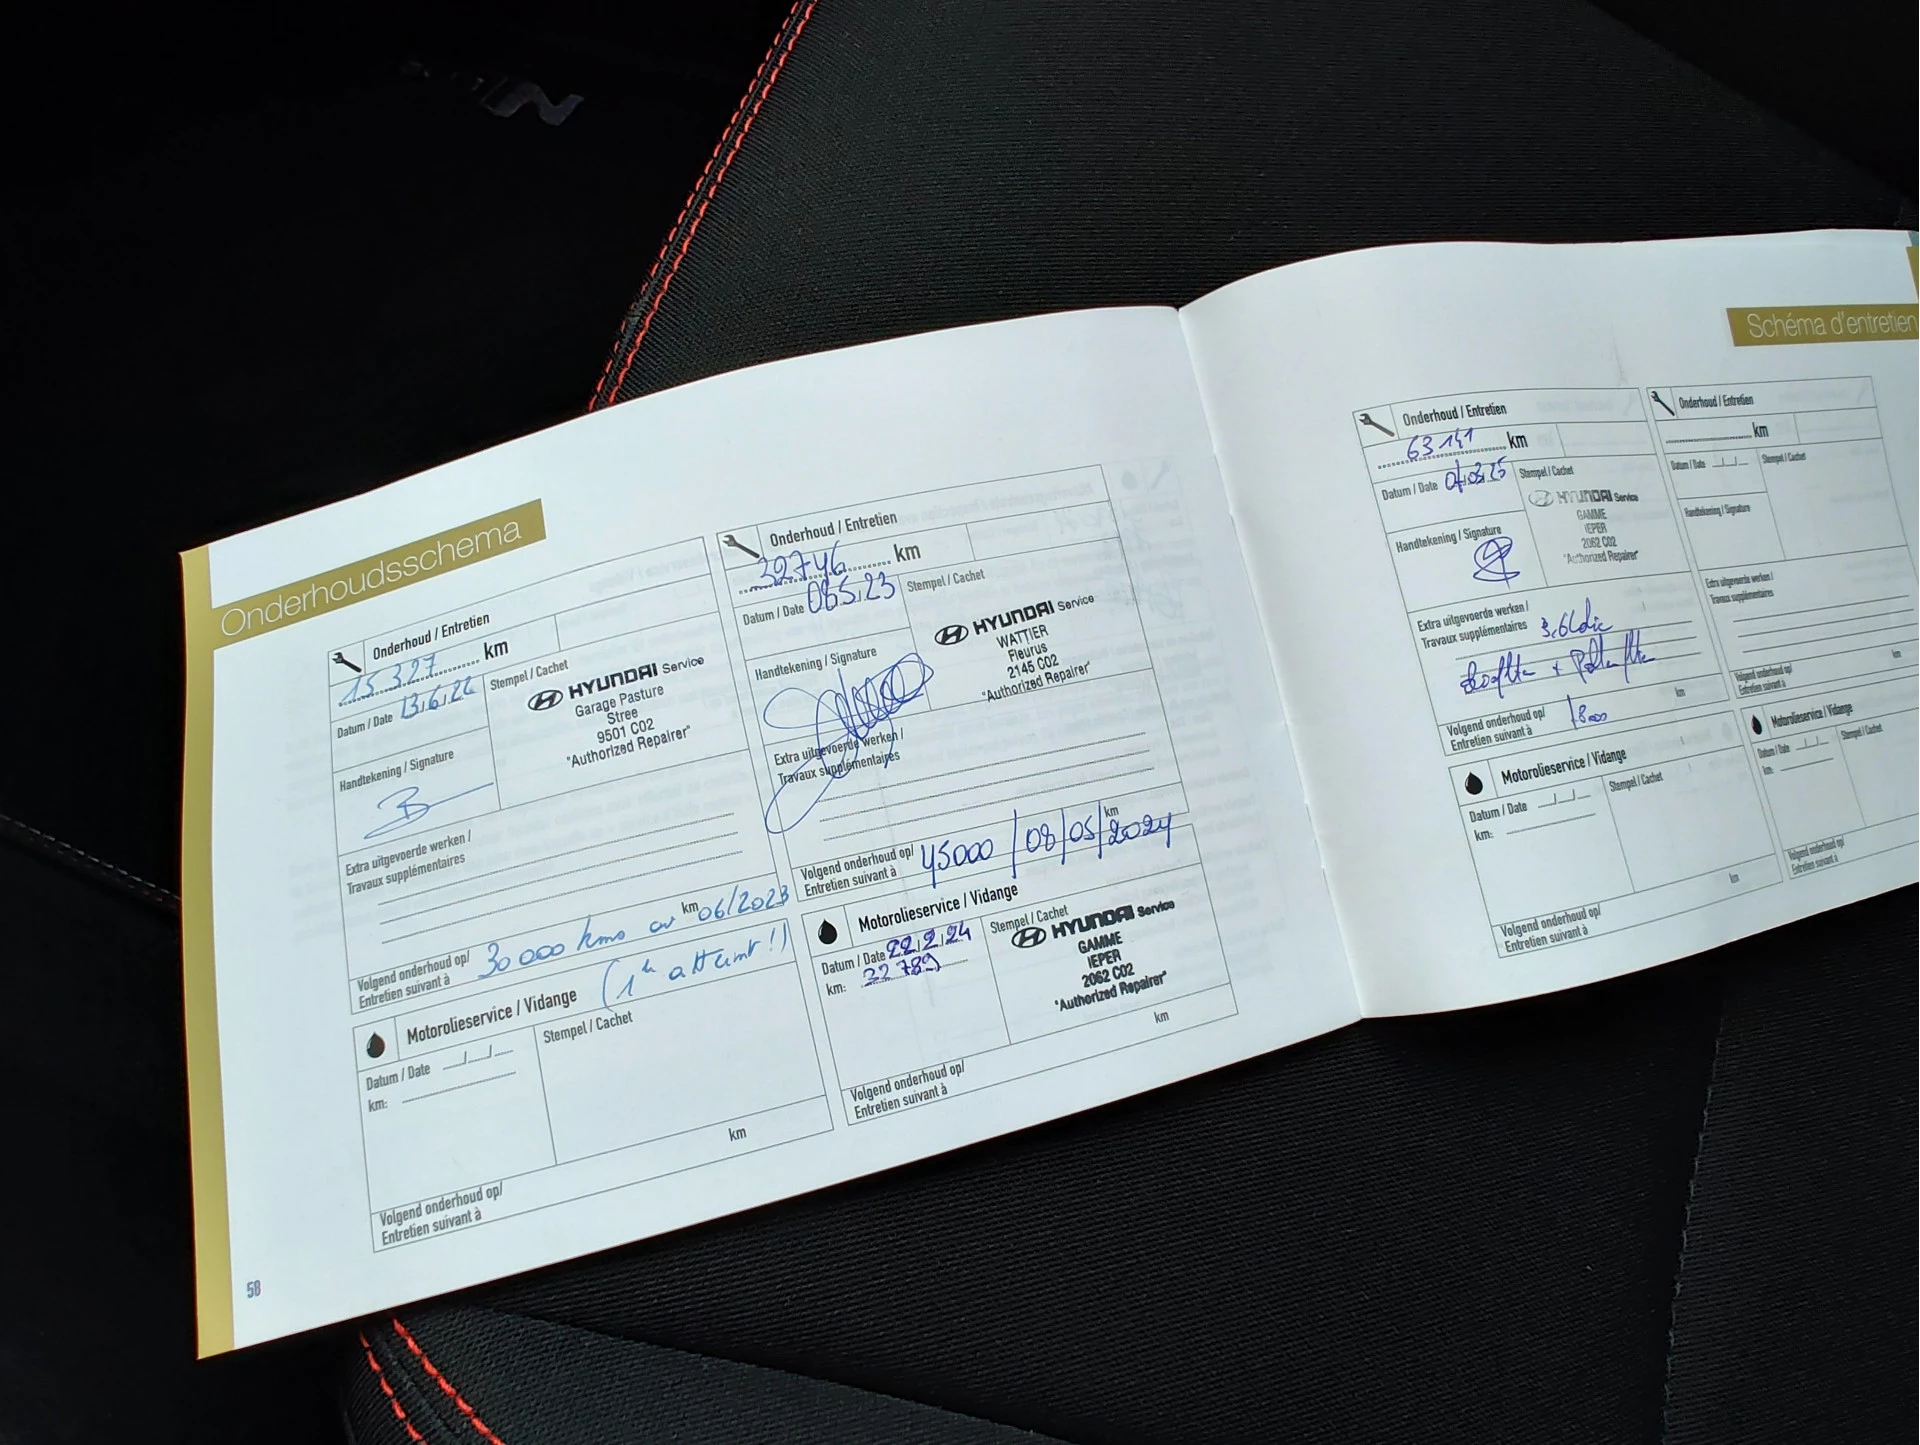 Onderhoudsschema
Onderhoud / Entretien
15.327 km
Datum / Date 13,6,22
Stempel / Cachet
HYUNDAI Service
Garage Pasture
Stree
9501 C02
"Authorized Repairer"
Handtekening / Signature
Extra uitgevoerde werken /
Travaux supplémentaires
km
Volgend onderhoud op/
Entretien suivant à
30 000 kms ou 06/2023
(1er atteint !)
Motorolieservice / Vidange
Datum / Date
Stempel / Cachet
km:
km
Volgend onderhoud op/
Entretien suivant à
58
Onderhoud / Entretien
32746 km
Datum / Date
Stempel / Cachet
HYUNDAI Service
WATTIER
Fleurus
2145 C02
"Authorized Repairer"
Handtekening / Signature
Extra uitgevoerde werken /
Travaux supplémentaires
km
Volgend onderhoud op/
Entretien suivant à
45000 / 08/05/2024
Motorolieservice / Vidange
Datum / Date 22,2,24
km:
Stempel / Cachet
HYUNDAI Service
GAMME
IEPER
2062 C02
"Authorized Repairer"
km
Volgend onderhoud op/
Entretien suivant à
Schéma d'entretien
Onderhoud / Entretien
63141 km
Datum / Date
Stempel / Cachet
HYUNDAI Service
GAMME
IEPER
2062 C02
"Authorized Repairer"
Handtekening / Signature
Extra uitgevoerde werken /
Travaux supplémentaires
km
Volgend onderhoud op/
Entretien suivant à
Motorolieservice / Vidange
Datum / Date
Stempel / Cachet
km:
km
Volgend onderhoud op/
Entretien suivant à
Onderhoud / Entretien
km
Datum / Date
Stempel / Cachet
Handtekening / Signature
Extra uitgevoerde werken /
Travaux supplémentaires
km
Volgend onderhoud op/
Entretien suivant à
Motorolieservice / Vidange
Datum / Date
Stempel / Cachet
km:
Volgend onderhoud op/
Entretien suivant à